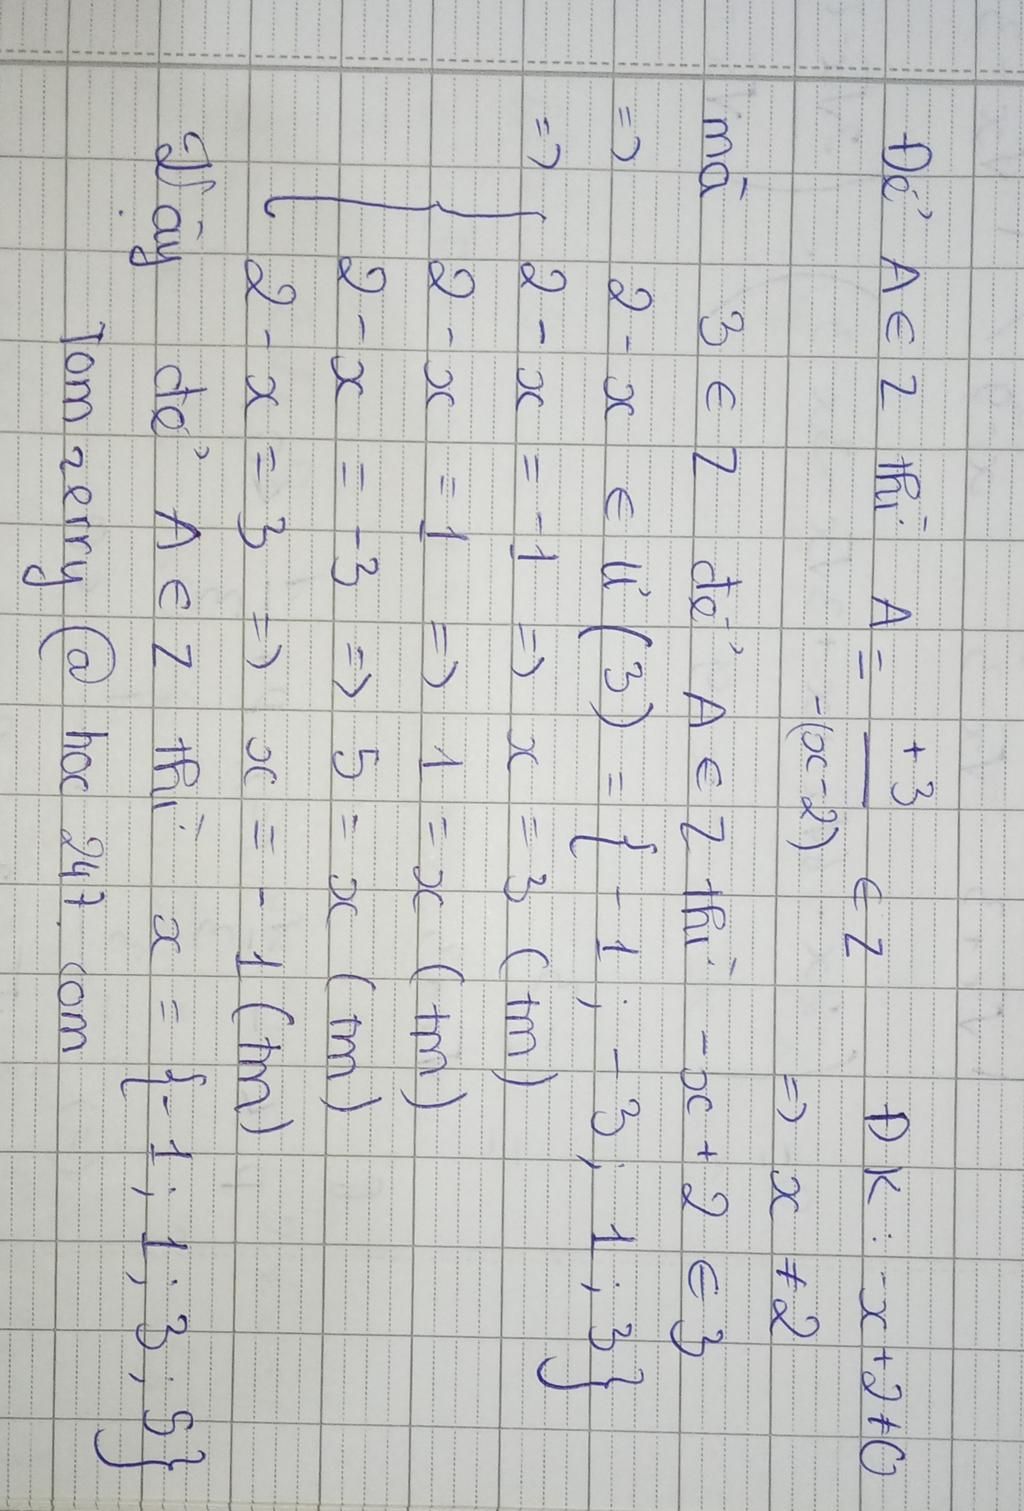 Để A ∈ Z thì A = +3/-(x-2) ∈ Z ĐK: -x+2≠0
=> x ≠ 2
mà 3 ∈ Z để A ∈ Z thì -x+2 ∈ 3
=> 2-x ∈ Ư(3) = {-1; -3; 1; 3}
=> { 2-x = -1 => x = 3 (tm)
2-x = 1 => 1 = x (tm)
2-x = -3 => 5 = x (tm)
2-x = 3 => x = -1 (tm)
Vậy để A ∈ Z thì x = {-1; 1; 3; 5}
Tomzerry @ hoc 247.com